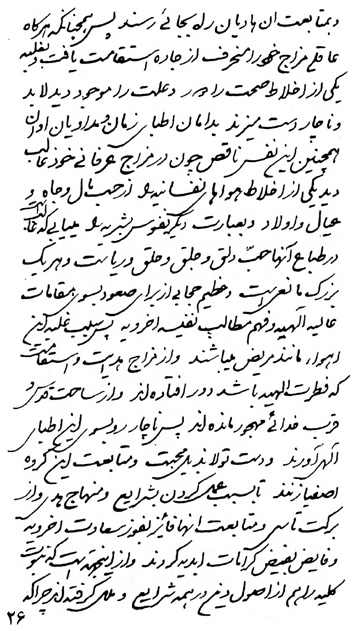 و بمتابعت ان هادیان راه بجائی رسند پس همچنانکه هرگاه
عاقلی مزاج خود را منحرف از جاده استقامت یافت و بغلبه
یکی از اخلاط صحت را در و علت را موجود دید لابد
و ناچار دست میزند بدامان اطبای زمان و مداویان اوان
همچنین این نفس ناقص چون در مزاج عرفانی خود غالب
دید یکی از اخلاط هواهای نفسانیه را از حب مال و جاه و
عیال و اولاد و بعبارت دیگر نفوس بشریه را
در طباع آنها حب دلق و جلق و حلق و ریاست و هریک
بزرگ مانعی است و عظیم حجابی از برای صعود بسوی مقامات
عالیه آلهیه و فهم مطالب نفیسه اخرویه پس بسبب غلبه این
اهواء مانند مریض میباشند و از مزاج هدایت و استقامت
که فطرت الهیه باشد دور افتاده اند و از ساحت قدس و
قرب خدائی مهجور مانده اند پس ناچار رو بسوی این اطبای
آلهی آورند و دست تولا بذیل محبت و متابعت این گروه
اصفیا زنند تا بسبب عمل کردن بشرایع و منهاج هدی و از
برکت تأسی و متابعت انها فایز بفوز سعادت اخرویه
و فایض بفیض کرامات ابدیه گردند و از اینجهتست که نبوت
کلیه را هم از اصول دین در همه شرایع و ملل گرفته اند چرا که
۲۶